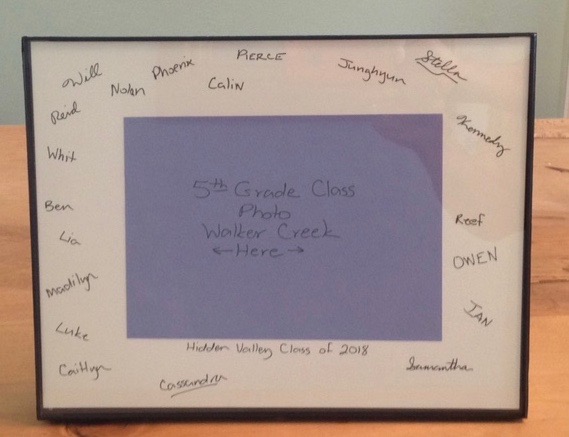 Will
Phoenix
PIERCE
Junghyun
Stella
Nolan
Calin
Reid
Kennedy
Whit
5th Grade Class
Photo
Walker Creek
← Here →
Ben
Reef
Lia
OWEN
Madilyn
IAN
Luke
Hidden Valley Class of 2018
Caitlyn
Cassandra
Samantha